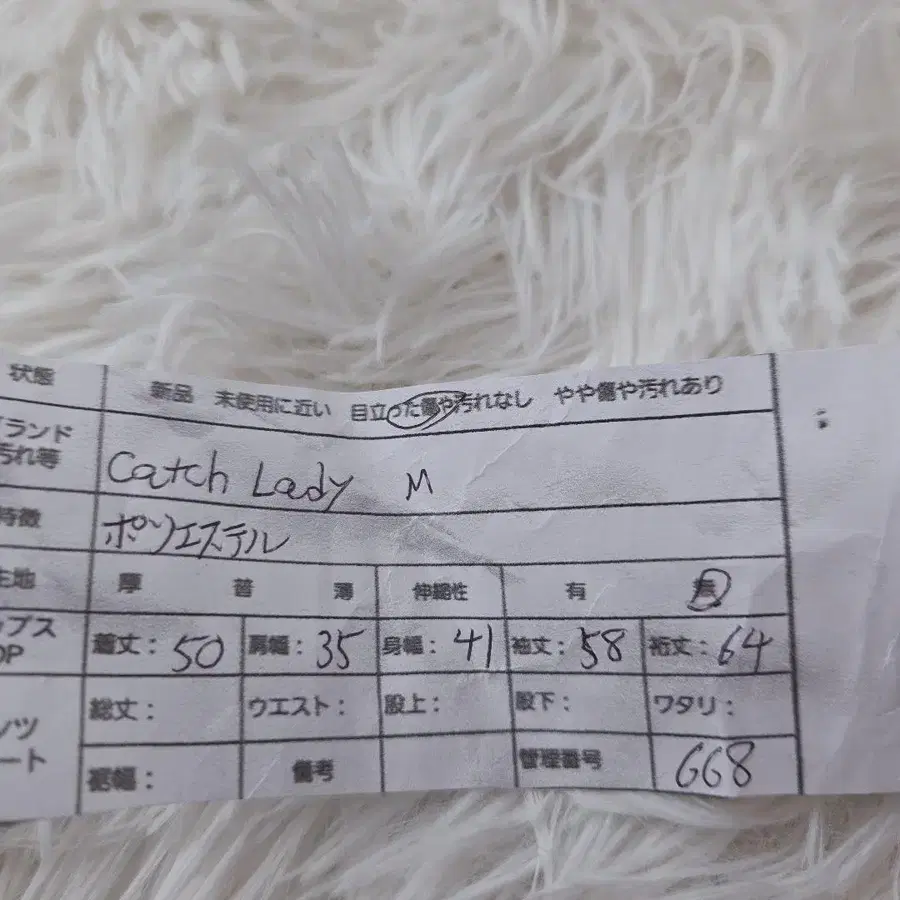 状態 新品 未使用に近い 目立った傷や汚れなし やや傷や汚れあり
ランド
汚れ等 Catch Lady M
特徴 ポリエステル
生地 厚 普 薄 伸縮性 有 無
ップス
OP 着丈: 50 肩幅: 35 身幅: 41 袖丈: 58 裄丈: 64
ンツ
ート 総丈: ウエスト: 股上: 股下: ワタリ:
裾幅: 備考 管理番号 668